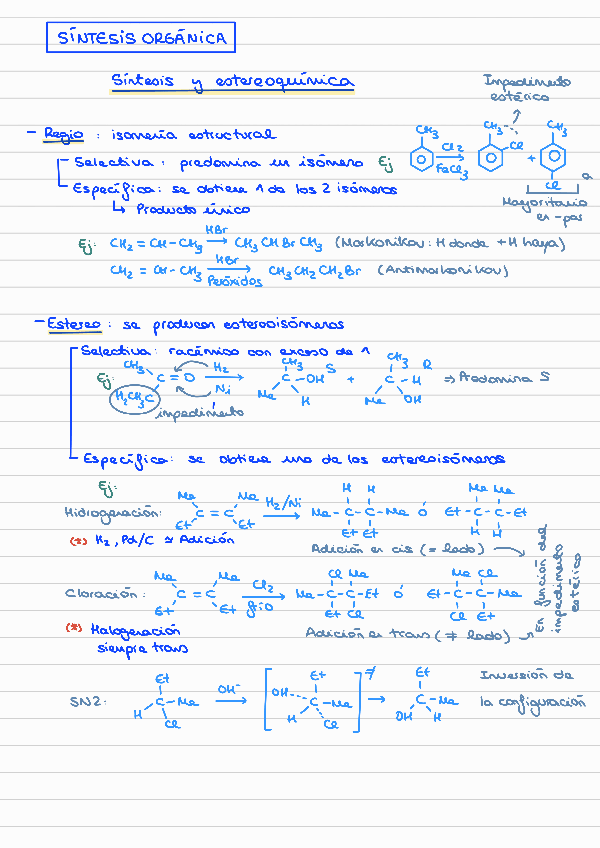 SÍNTESIS ORGÁNICA
Síntesis y estereoquímica
Impedimento
estérico
- Regio : isomería estructural
CH₃ CH₃ CH₃
Selectiva : predomina un isómero Ej Cl₂ Cl
FeCl₃ +
Específica : se obtiene 1 de los 2 isómeros Cl
↳ Producto único Mayoritario
en -pas
Ej: CH₂ = CH - CH₃ HBr → CH₃ CH Br CH₃ (Markonikov : H donde + H haya)
CH₂ = CH - CH₃ HBr → Peróxidos CH₃CH₂CH₂Br (Antimarkonikov)
- Estereo : se producen estereoisómeros
Selectiva : racémico con exceso de 1
Ej: CH₃ H₂CH₃C C = O H₂ → Ni CH₃ S C - OH Me H + CH₃ R C - H Me OH ⇒ Predomina S
impedimento
Específica : se obtiene uno de los estereoisómeros
Ej:
Hidrogenación: Me Et C = C Me Et H₂/Ni → H H Me - C - C - Me Et Et ó Me Me Et - C - C - Et H H
(*) H₂, Pd/C ≈ Adición
Adición en cis (= lado)
En función del
impedimento
estérico
Cloración : Me Et C = C Me Et Cl₂ → frío Cl Me Me - C - C - Et Et Cl ó Me Cl Et - C - C - Me Cl Et
(*) Halogenación
siempre trans
Adición en trans (≠ lado)
SN2: Et C - Me H Cl OH⁻ → [ OH Et C - Me H Cl ]≠ → Et C - Me OH H
Inversión de
la configuración